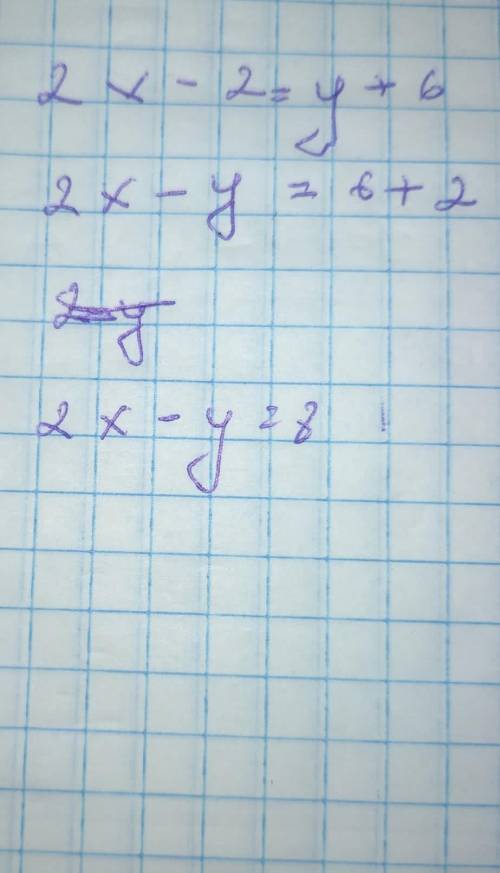 2x - 2 = y + 6
2x - y = 6 + 2
2x - y = 8